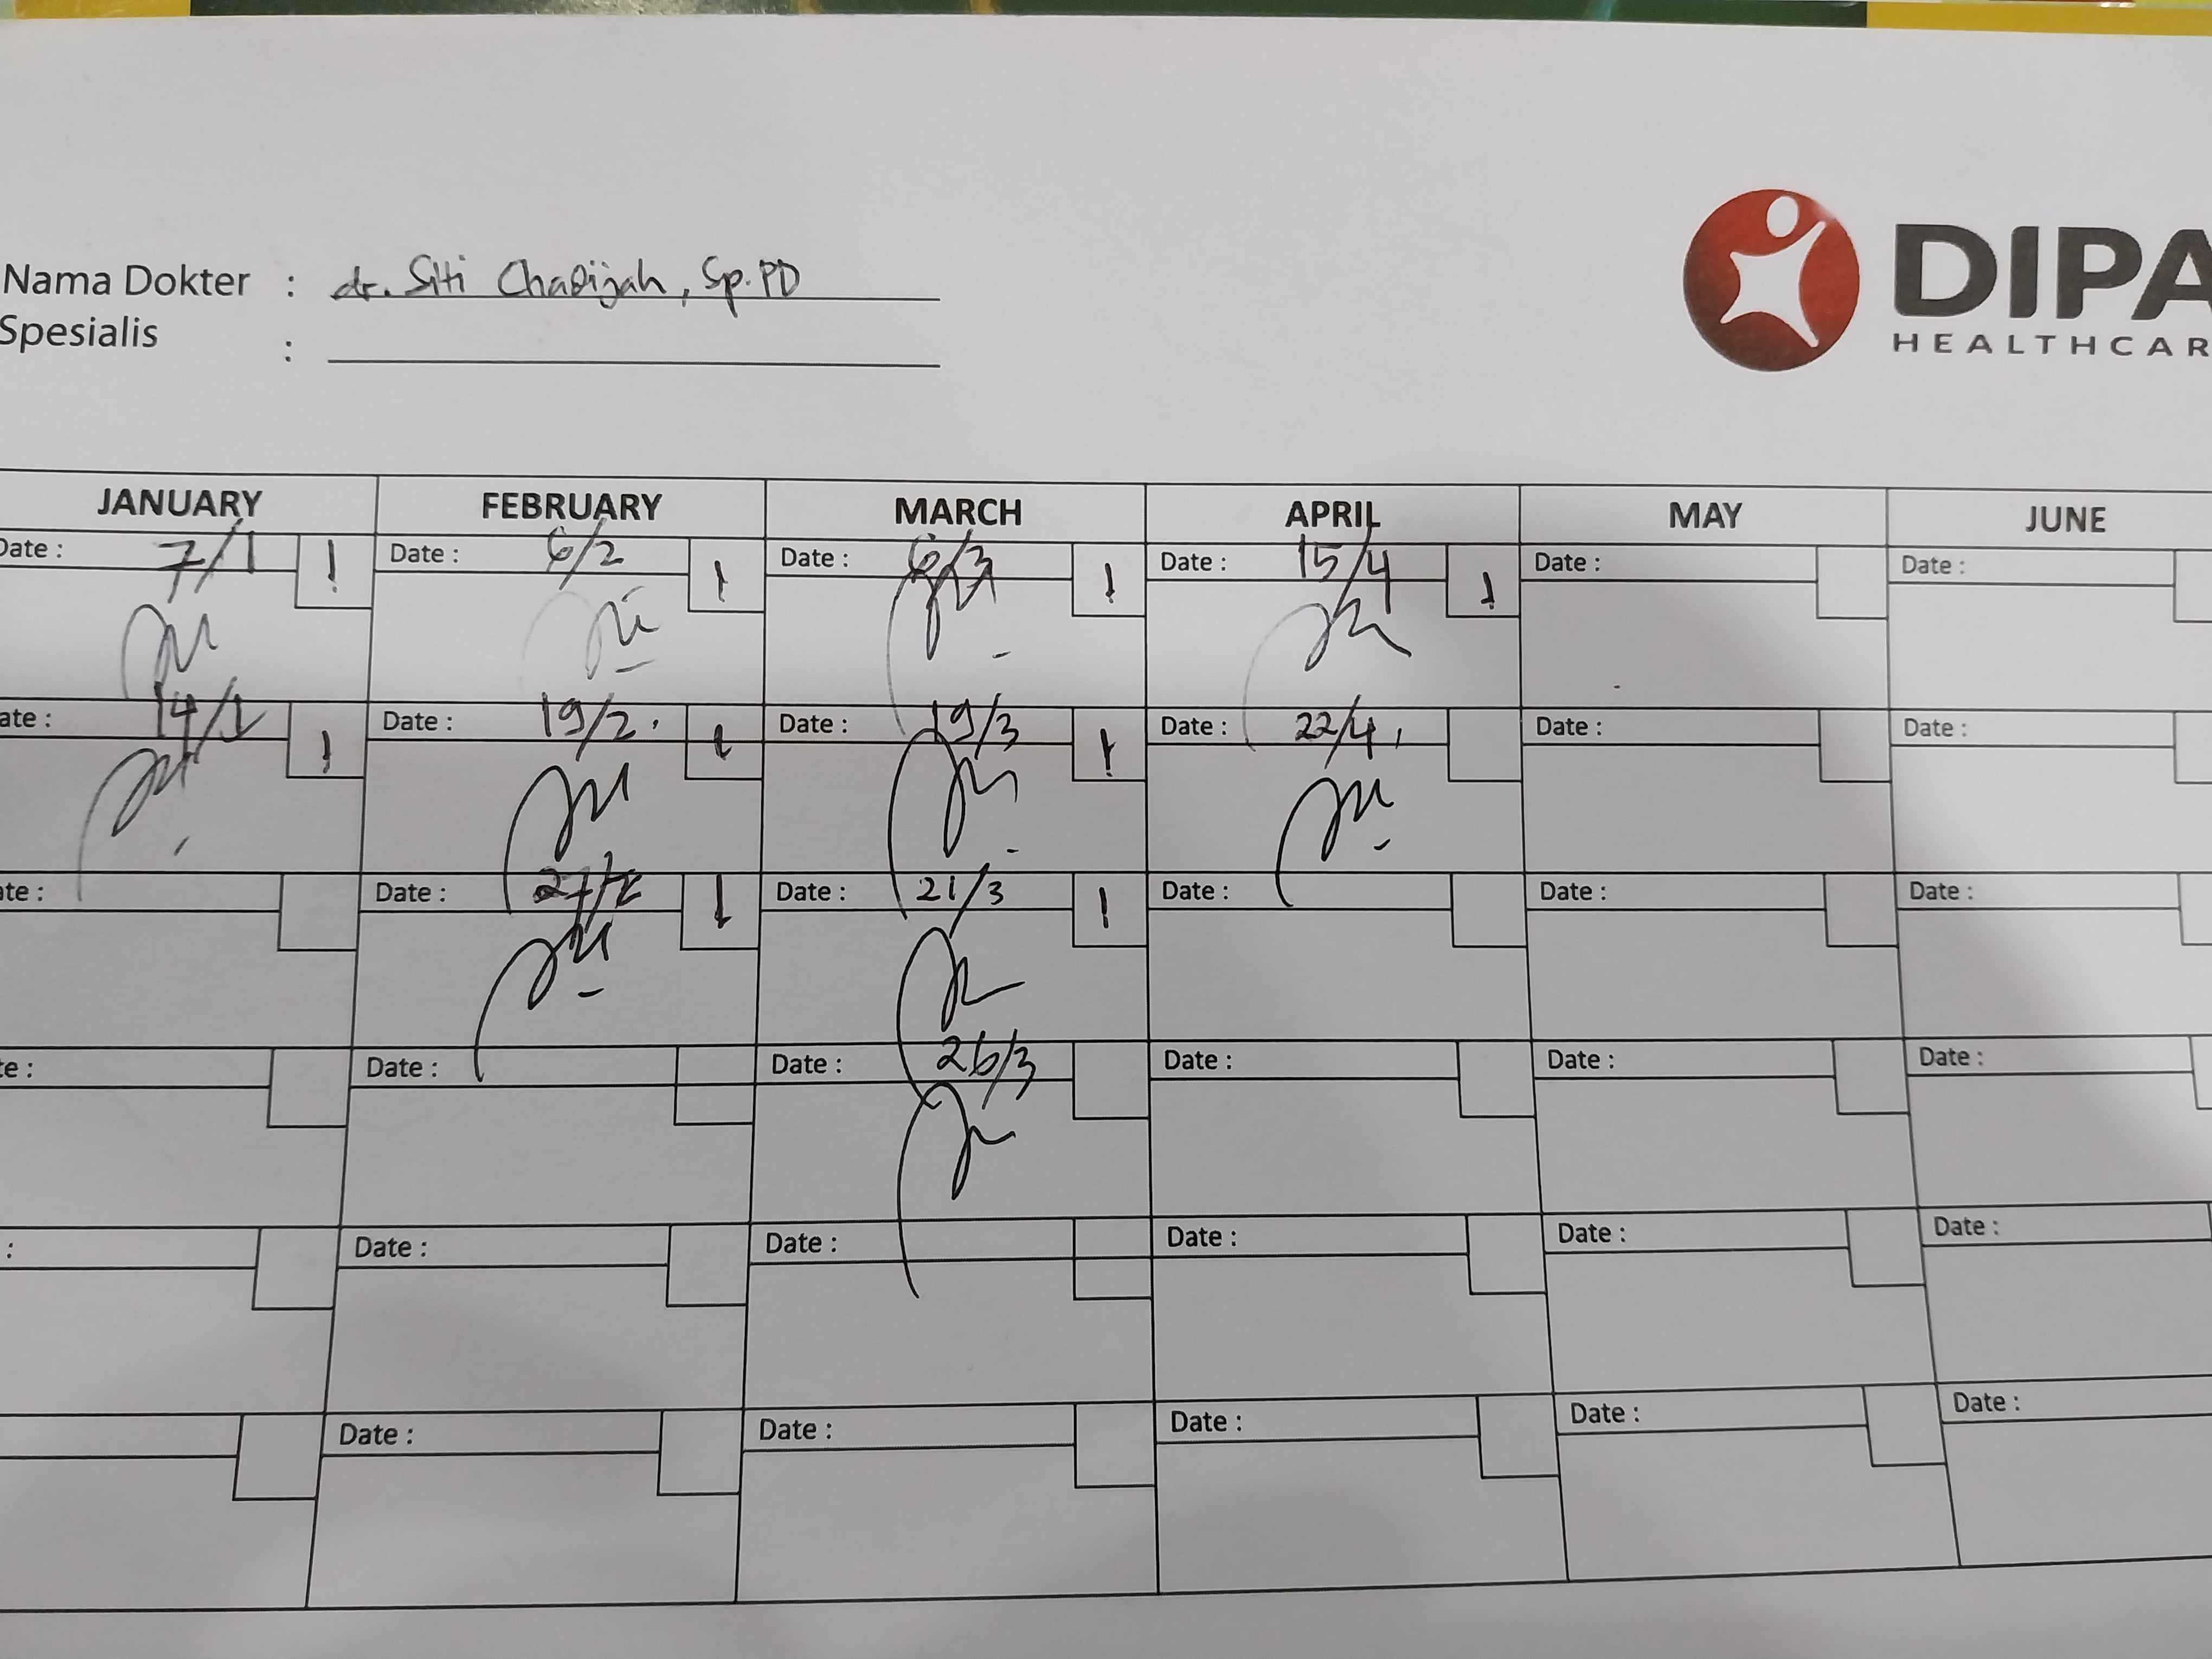 Nama Dokter : dr. Siti Chadijah, Sp.PD
Spesialis :
DIPA
HEALTHCAR
JANUARY FEBRUARY MARCH APRIL MAY JUNE
Date : 7/1 Date : 6/2 Date : 6/3 Date : 15/4 Date : Date :
ate : 14/1 Date : 19/2 Date : 19/3 Date : 22/4 Date : Date :
ate : Date : 27/2 Date : 21/3 Date : Date : Date :
te : Date : Date : 26/3 Date : Date : Date :
: Date : Date : Date : Date : Date :
Date : Date : Date : Date : Date :